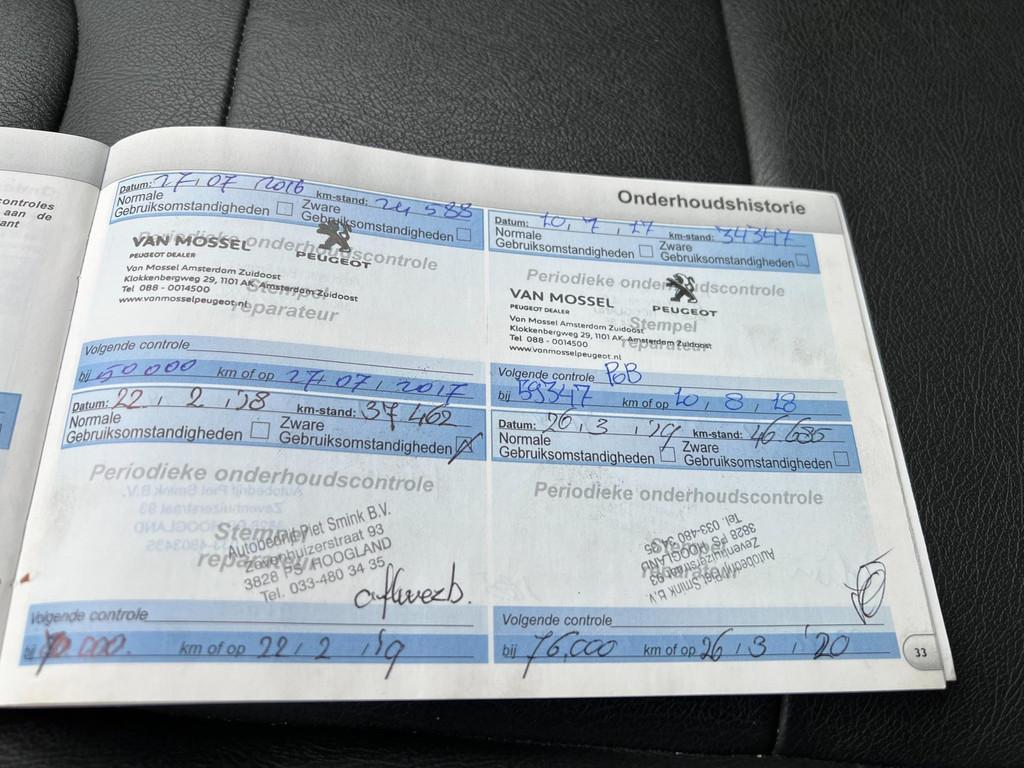 controles
aan de
ant
Onderhoudshistorie
Datum: 27, 07 2016 km-stand: 24 588
Normale
Gebruiksomstandigheden
Zware
Gebruiksomstandigheden
Periodieke onderhoudscontrole
VAN MOSSEL
PEUGEOT DEALER
PEUGEOT
Van Mossel Amsterdam Zuidoost
Klokkenbergweg 29, 1101 AK Amsterdam Zuidoost
Tel 088 - 0014500
www.vanmosselpeugeot.nl
Stempel
reparateur
Volgende controle
bij 50 000 km of op 27, 07, 2017
Datum: 10, 7, 17 km-stand: 34347
Normale
Gebruiksomstandigheden
Zware
Gebruiksomstandigheden
Periodieke onderhoudscontrole
VAN MOSSEL
PEUGEOT DEALER
PEUGEOT
Van Mossel Amsterdam Zuidoost
Klokkenbergweg 29, 1101 AK Amsterdam Zuidoost
Tel 088 - 0014500
www.vanmosselpeugeot.nl
Stempel
reparateur
Volgende controle
bij 59347 km of op 10, 8, 18
Datum: 22, 2, '18 km-stand: 37 462
Normale
Gebruiksomstandigheden
Zware
Gebruiksomstandigheden
Periodieke onderhoudscontrole
Stempel
reparateur
Autobedrijf Piet Smink B.V.
Zevenhuizerstraat 93
3828 PS HOOGLAND
Tel. 033-480 34 35
Volgende controle
bij 70.000. km of op 22, 2, '19
Datum: 26, 3, '19 km-stand: 46 685
Normale
Gebruiksomstandigheden
Zware
Gebruiksomstandigheden
Periodieke onderhoudscontrole
Stempel
reparateur
Autobedrijf Piet Smink B.V.
Zevenhuizerstraat 93
3828 PS HOOGLAND
Tel. 033-480 34 35
Volgende controle
bij 76,000 km of op 26, 3, '20
33